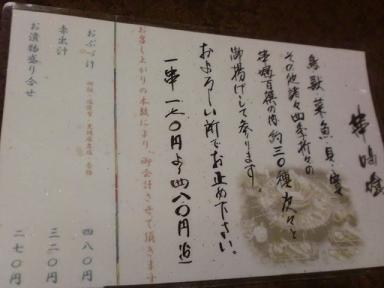 串揚盛
鳥獣菜魚貝豊
その他諸々四季折々の
串揚百種の内約三〇種次々と
御揚げして参ります。
およろしい所でお止め下さい。
一串 一七〇円より四八〇円迄
お召し上がりの本数により、御会計させて頂きます
おぶぶ汁 四八〇円
赤出汁 三二〇円
お漬物盛り合せ 二七〇円